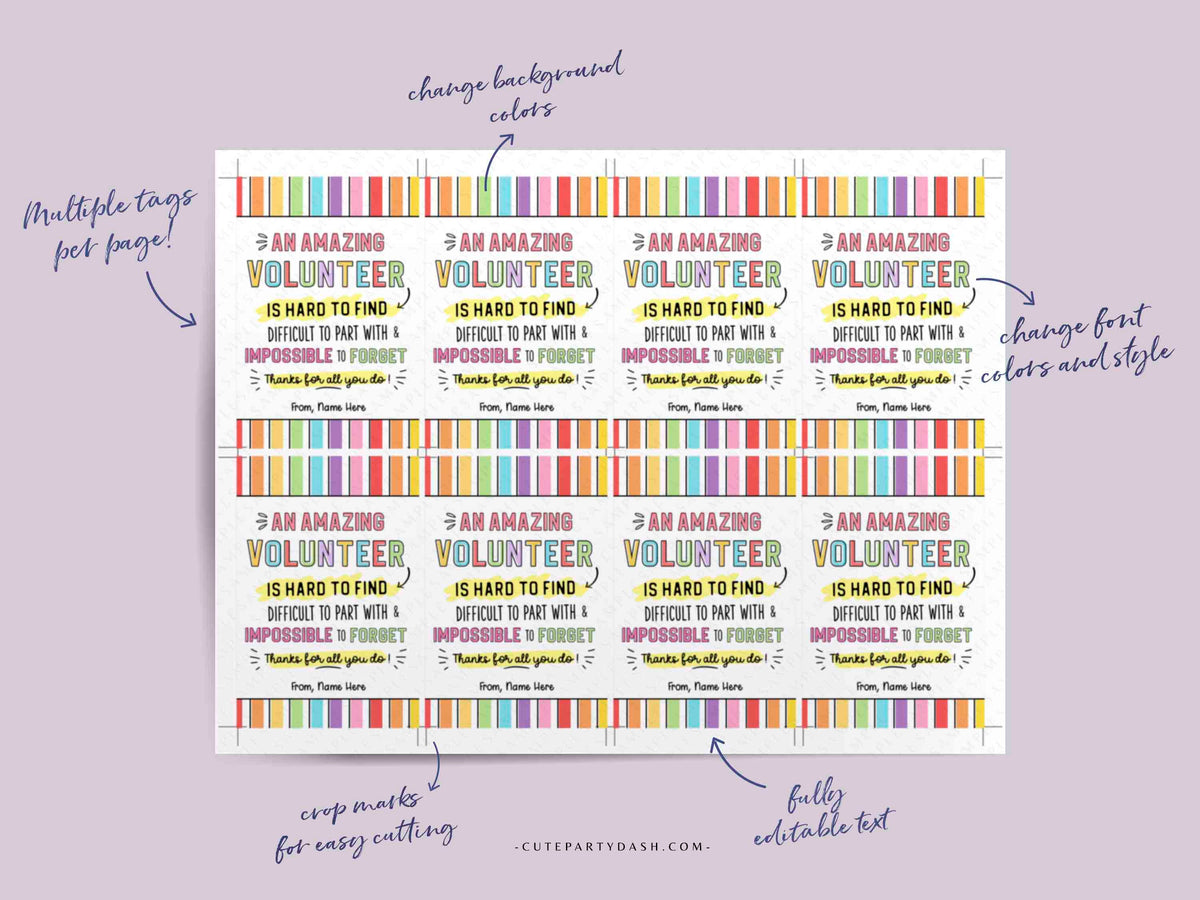 change background
colors
Multiple tags
per page!
AN AMAZING
VOLUNTEER
IS HARD TO FIND
DIFFICULT TO PART WITH &
IMPOSSIBLE TO FORGET
Thanks for all you do!
From, Name Here
AN AMAZING
VOLUNTEER
IS HARD TO FIND
DIFFICULT TO PART WITH &
IMPOSSIBLE TO FORGET
Thanks for all you do!
From, Name Here
AN AMAZING
VOLUNTEER
IS HARD TO FIND
DIFFICULT TO PART WITH &
IMPOSSIBLE TO FORGET
Thanks for all you do!
From, Name Here
AN AMAZING
VOLUNTEER
IS HARD TO FIND
DIFFICULT TO PART WITH &
IMPOSSIBLE TO FORGET
Thanks for all you do!
From, Name Here
change font
colors and style
AN AMAZING
VOLUNTEER
IS HARD TO FIND
DIFFICULT TO PART WITH &
IMPOSSIBLE TO FORGET
Thanks for all you do!
From, Name Here
AN AMAZING
VOLUNTEER
IS HARD TO FIND
DIFFICULT TO PART WITH &
IMPOSSIBLE TO FORGET
Thanks for all you do!
From, Name Here
AN AMAZING
VOLUNTEER
IS HARD TO FIND
DIFFICULT TO PART WITH &
IMPOSSIBLE TO FORGET
Thanks for all you do!
From, Name Here
AN AMAZING
VOLUNTEER
IS HARD TO FIND
DIFFICULT TO PART WITH &
IMPOSSIBLE TO FORGET
Thanks for all you do!
From, Name Here
crop marks
for easy cutting
fully
editable text
-CUTEPARTYDASH.COM-